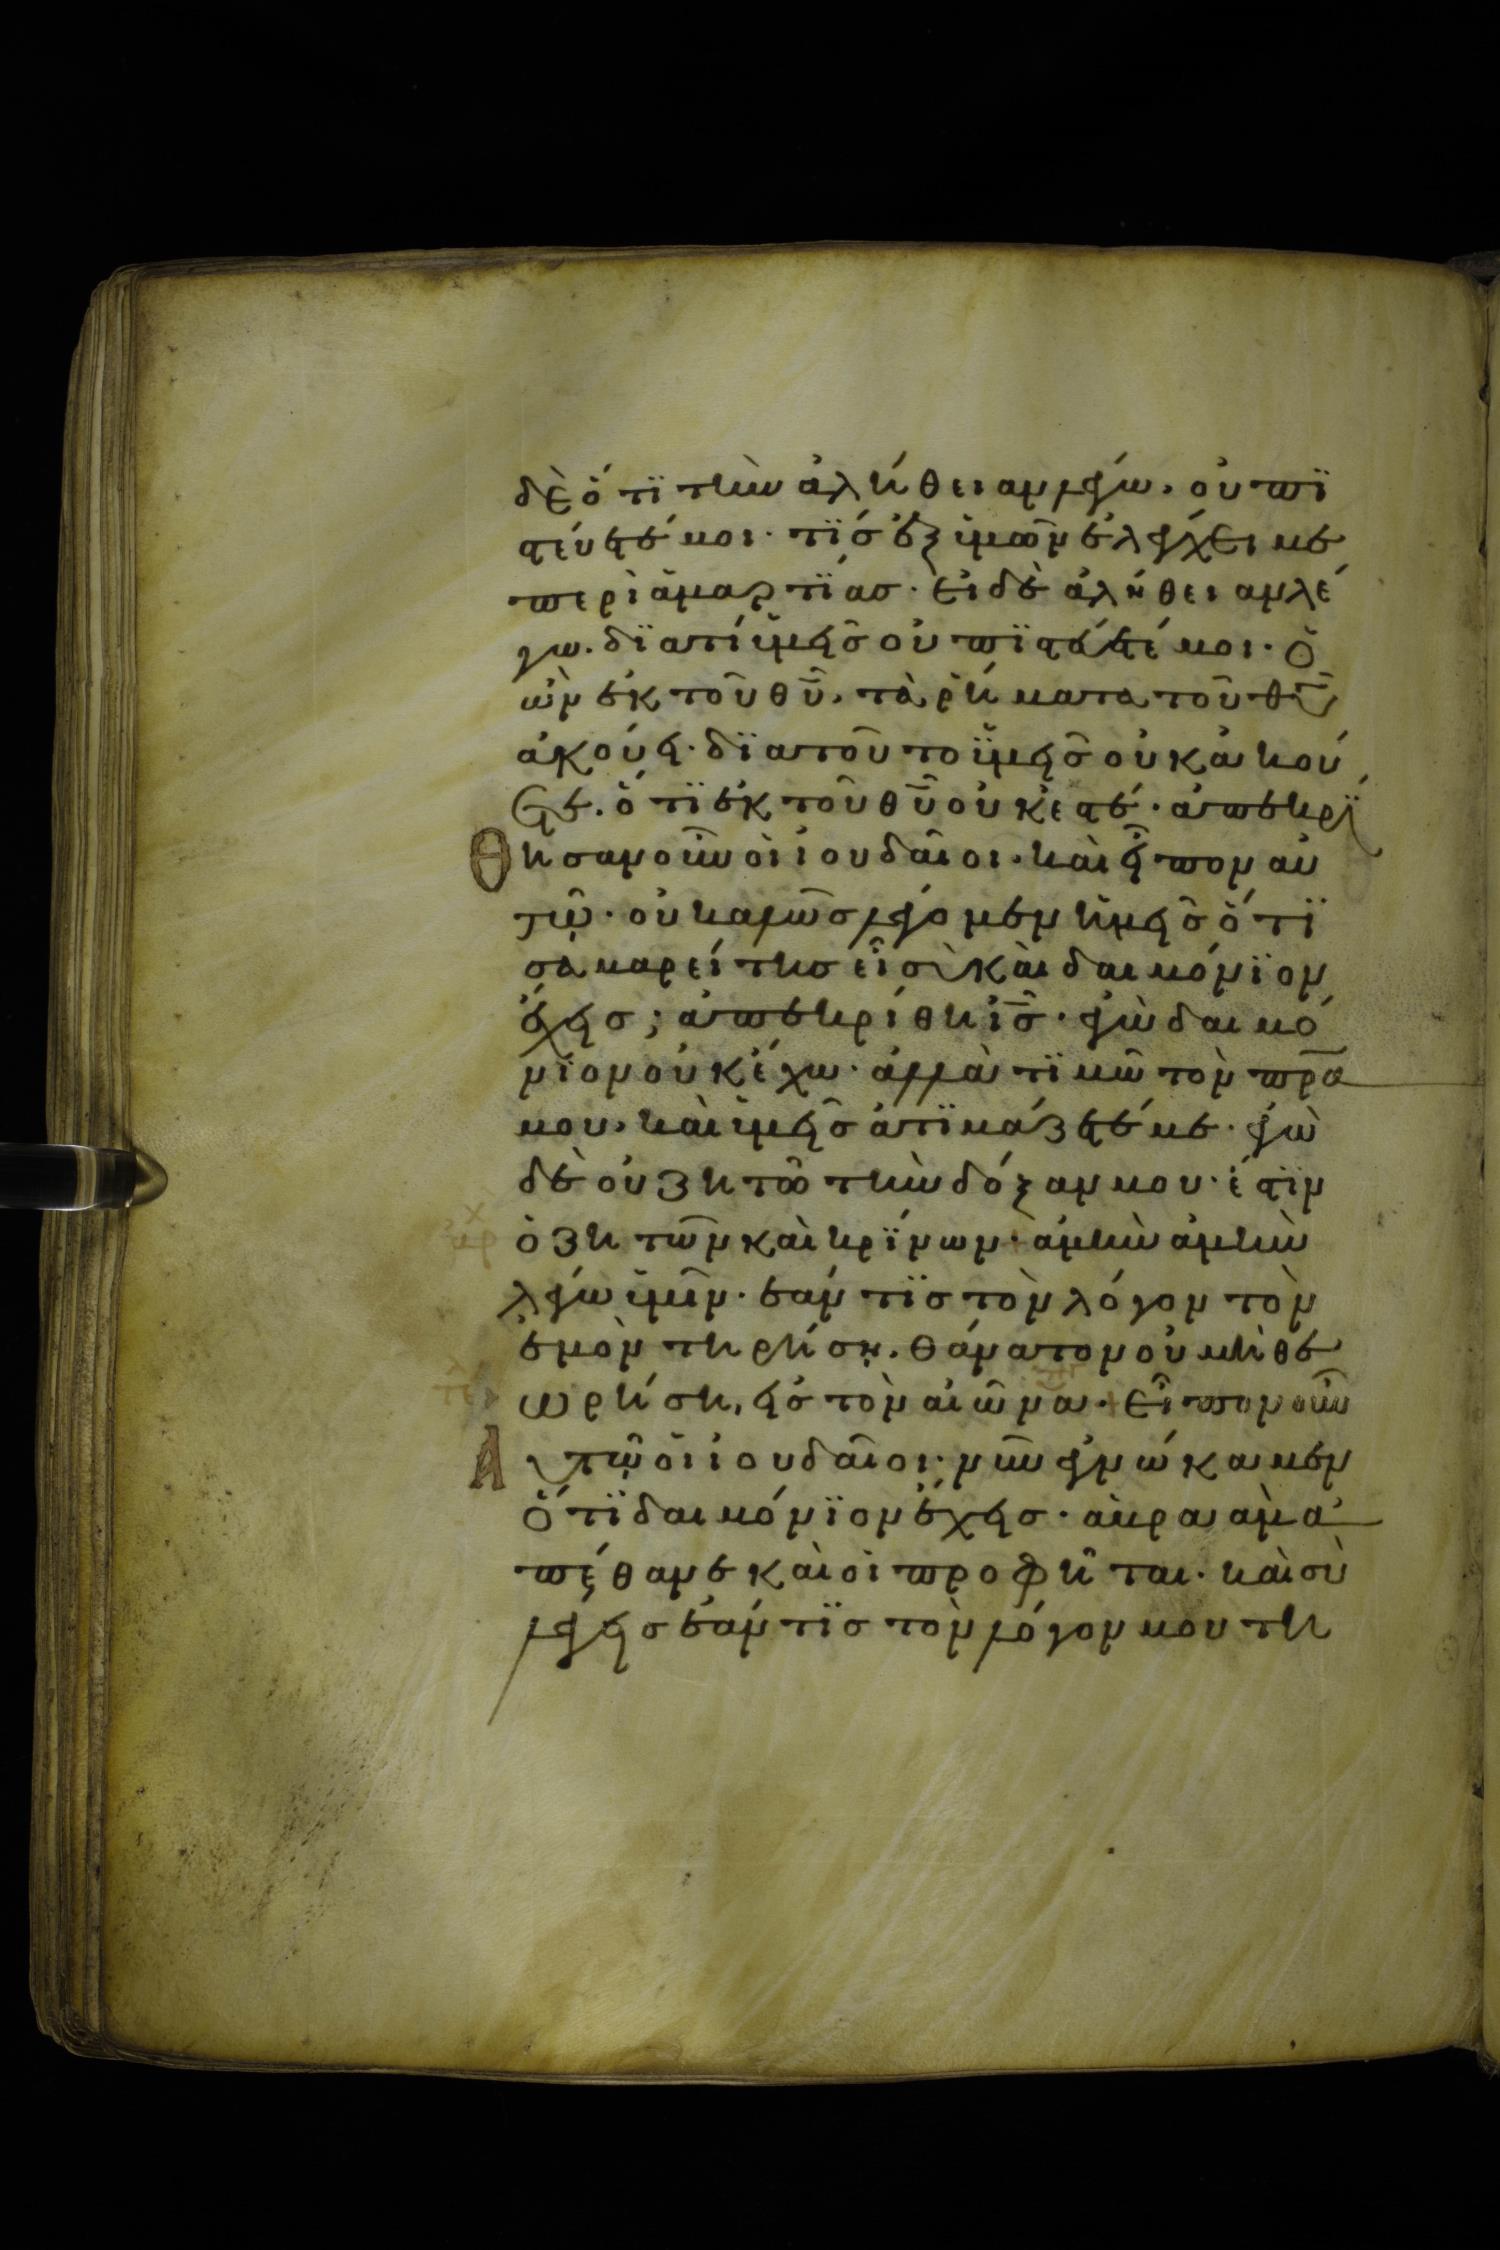 δὲ ὅτι τὴν ἀλήθειαν λέγω, οὐ πι
στεύετέ μοι· τίς ἐξ ὑμῶν ἐλέγχει με
περὶ ἁμαρτίας· εἰ δὲ ἀλήθειαν λέ
γω. διατί ὑμεῖς οὐ πιστεύετέ μοι· ὁ
ὢν ἐκ τοῦ θ̅υ̅, τὰ ῥήματα τοῦ θ̅υ̅
ἀκούει· διατοῦτο ὑμεῖς οὐκ ἀκού
ετε. ὅτι ἐκ τοῦ θ̅υ̅ οὐκ ἐστέ· ἀπεκρί
Θησαν οὖν οἱ ἰουδαῖοι. καὶ εἶπον αὐ
τῷ· οὐ καλῶς λέγομεν ἡμεῖς ὅτι
σαμαρείτης εἶ σὺ καὶ δαιμόνιον
ἔχεις; ἀπεκρίθη ι̅ς̅· ἐγὼ δαιμό
νιον οὐκ ἔχω· ἀλλὰ τιμῶ τὸν π̅ρ̅α̅
μου, καὶ ὑμεῖς ἀτιμάζετέ με· ἐγὼ
δὲ οὐ ζητῶ τὴν δόξαν μου· ἔστιν
ὁ ζητῶν καὶ κρίνων· ἀμὴν ἀμὴν
λέγω ὑμῖν· ἐάν τις τὸν λόγον τὸν
ἐμὸν τηρήσῃ. θάνατον οὐ μὴ θε
ωρήσῃ, εἰς τὸν αἰῶνα· εἶπον οὖν
Αὐτῷ οἱ ἰουδαῖοι· νῦν ἐγνώκαμεν
ὅτι δαιμόνιον ἔχεις· ἀβραὰμ ἀ
πέθανε καὶ οἱ προφῆται· καὶ σὺ
λέγεις ἐάν τις τὸν λόγον μου τη